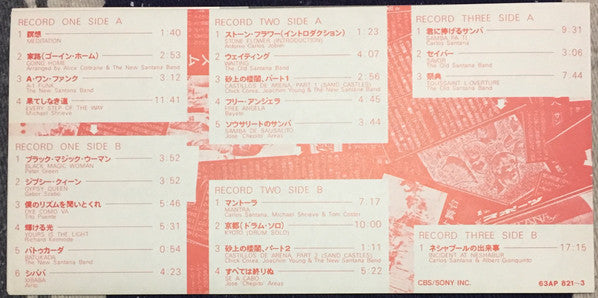 RECORD ONE SIDE A
1 瞑想 1:40
MEDITATION
2 家路(ゴーイン・ホーム) 2:53
GOING HOME
Arranged by Alice Coltrane & The New Santana Band
3 A・ワン・ファンク 3:12
A-1 FUNK
The New Santana Band
4 果てしなき道 11:41
EVERY STEP OF THE WAY
Michael Shrieve
RECORD ONE SIDE B
1 ブラック・マジック・ウーマン 3:52
BLACK MAGIC WOMAN
Peter Green
2 ジプシー・クィーン 3:52
GYPSY QUEEN
Gabor Szabo
3 僕のリズムを聞いとくれ 5:46
OYE COMO VA
Tito Puente
4 輝ける光 5:31
YOURS IS THE LIGHT
Richard Kermode
5 バトゥカーダ 0:54
BATUKADA
The New Santana Band
6 シババ 0:21
XIBABA
Airto
RECORD TWO SIDE A
1 ストーン・フラワー(イントロダクション) 1:23
STONE FLOWER (INTRODUCTION)
Antonio Carlos Jobim
2 ウェイティング 4:07
WAITING
The Old Santana Band
3 砂上の楼閣、パート1 2:56
CASTILLOS DE ARENA, PART 1 (SAND CASTLES)
Chick Corea, Joachim Young & The New Santana Band
4 フリー・アンジェラ 4:45
FREE ANGELA
Bayeté
5 ソウサリートのサンバ 3:44
SAMBA DE SAUSALITO
Jose Chepito Areas
RECORD TWO SIDE B
1 マントーラ 7:17
MANTRA
Carlos Santana, Michael Shrieve & Tom Coster
2 京都(ドラム・ソロ) 10:00
KYOTO (DRUM SOLO)
3 砂上の楼閣、パート2 1:11
CASTILLOS DE ARENA, PART 2 (SAND CASTLES)
Chick Corea, Joachim Young & The New Santana Band
4 すべては終りぬ 5:22
SE A CABO
Jose Chepito Areas
RECORD THREE SIDE A
1 君に捧げるサンバ 9:31
SAMBA PA TI
Carlos Santana
2 セイバー 3:06
SAVOR
The Old Santana Band
3 祭典 7:44
TOUSSAINT L'OVERTURE
The Old Santana Band
RECORD THREE SIDE B
ネシャブールの出来事 17:15
INCIDENT AT NESHABUR
Carlos Santana & Alberto Gianquinto
CBS/SONY INC. 63AP 821~3